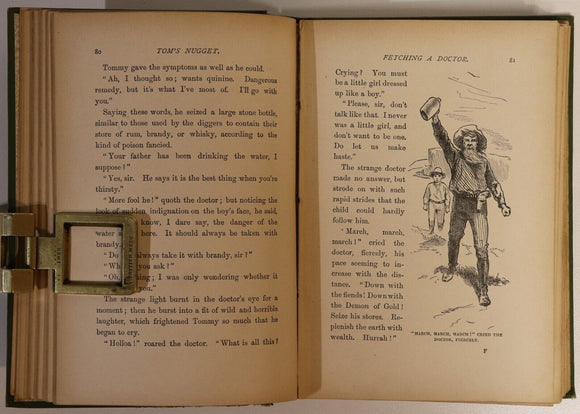 80 TOM'S NUGGET.
Tommy gave the symptoms as well as he could.
"Ah, I thought so; wants quinine. Dangerous
remedy, but it's what I've most of. I'll go with
you."
Saying these words, he seized a large stone bottle,
similar to those used by the diggers to contain their
store of rum, brandy, or whisky, according to the
kind of poison fancied.
"Your father has been drinking the water, I
suppose?"
"Yes, sir. He says it is the best thing when you're
thirsty."
"More fool he!" quoth the doctor; but noticing the
look of sudden indignation on the boy's face, he said,
know, I dare say, the danger of the
water here. It should always be taken with
brandy.
"Do always take it with brandy, sir?"
"Wh you ask?"
"Oh, ing; I was only wondering whether it
The strange light burst in the doctor's eye for a
moment; then he burst into a fit of wild and horrible
laughter, which frightened Tommy so much that he
began to cry.
"Helloa!" roared the doctor. "What is all this?
FETCHING A DOCTOR. 81
Crying? You must
be a little girl dressed
up like a boy."
"Please, sir, don't
talk like that. I never
was a little girl, and
don't want to be one.
Do let us make
haste."
The strange doctor
made no answer, but
strode on with such
rapid strides that the
child could hardly
follow him.
"March, march,
march!" cried the
doctor, fiercely, his
pace seeming to in-
crease with the dis-
tance. "Down with
the fiends! Down with
the Demon of Gold!
Seize his stores. Re-
plenish the earth with
wealth. Hurrah!"
"MARCH, MARCH, MARCH!" CRIED THE
DOCTOR, FIERCELY.
F